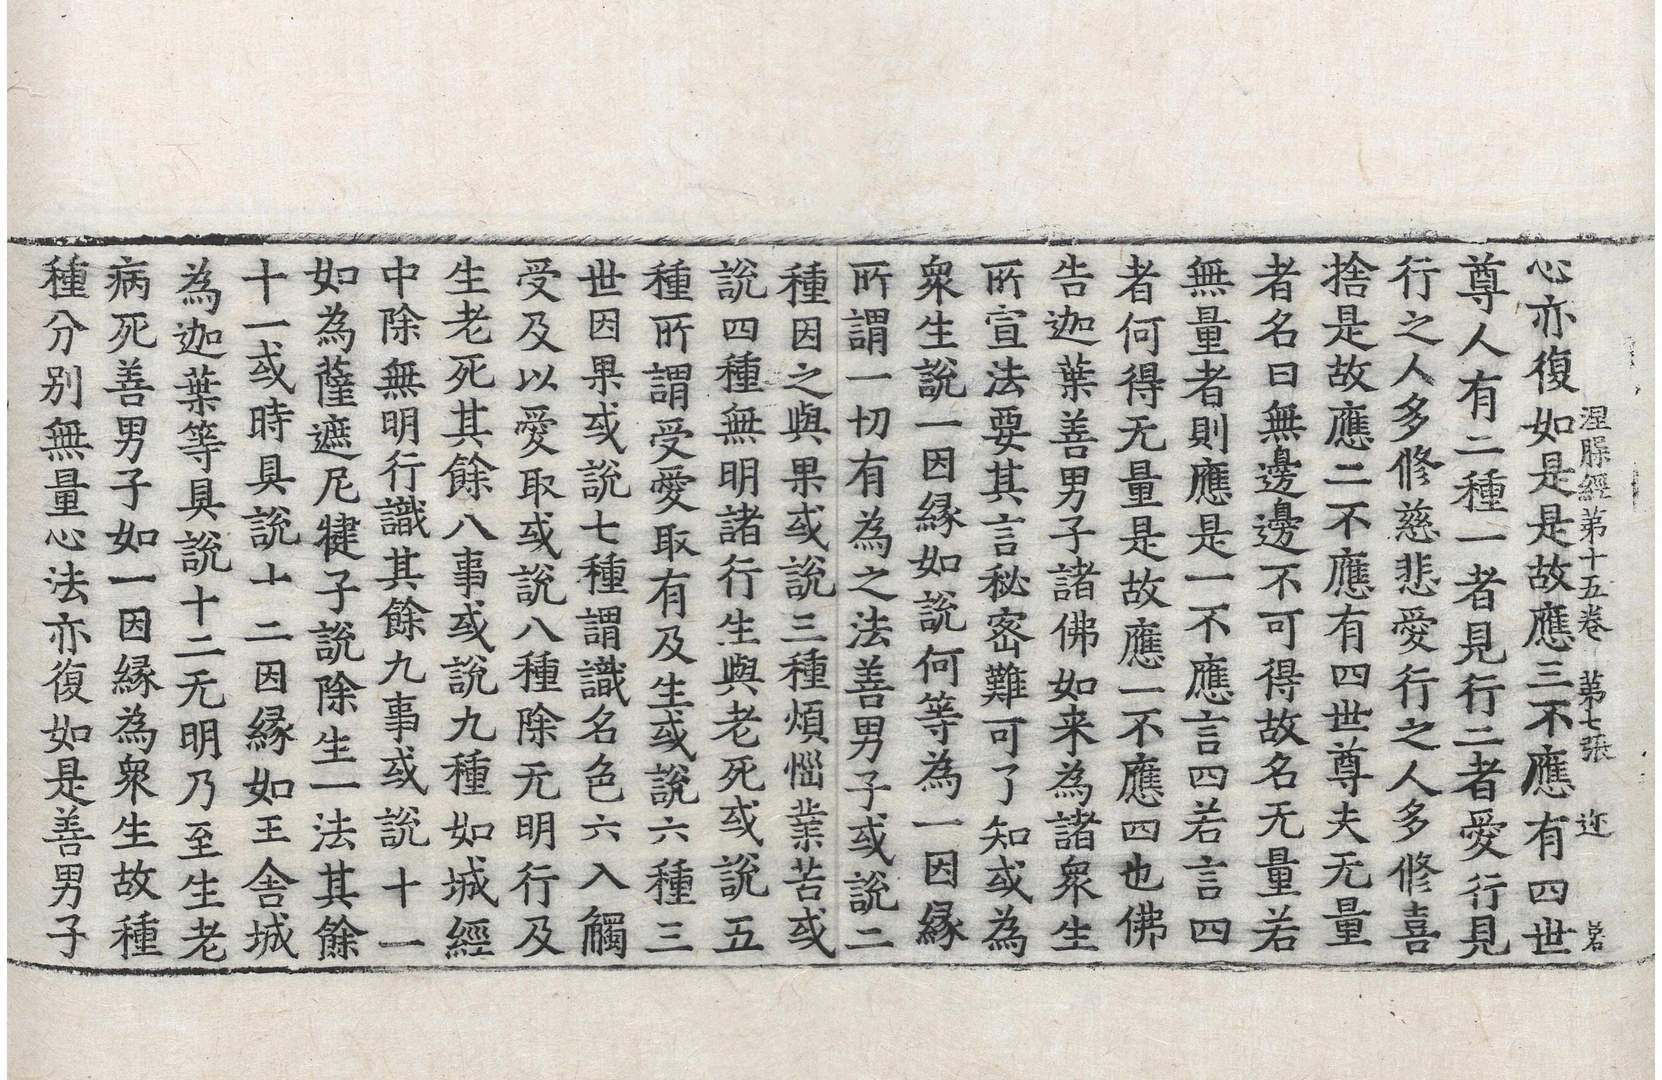 涅槃經第十五卷 第七張 迩 岩
心亦復如是是故應三不應有四世
尊人有二種一者見行二者愛行見
行之人多修慈悲愛行之人多修喜
捨是故應二不應有四世尊夫无量
者名曰無邊邊不可得故名无量若
無量者則應是一不應言四若言四
者何得无量是故應一不應四也佛
告迦葉善男子諸佛如来為諸衆生
所宣法要其言秘密難可了知或為
衆生説一因縁如説何等為一因縁
所謂一切有為之法善男子或説二
種因之與果或説三種煩惱業苦或
説四種無明諸行生與老死或説五
種所謂受愛取有及生或説六種三
世因果或説七種謂識名色六入觸
受及以愛取或説八種除无明行及
生老死其餘八事或説九種如城經
中除無明行識其餘九事或説十一
如為薩遮尼犍子説除生一法其餘
十一或時具説十二因縁如王舍城
為迦葉等具説十二无明乃至生老
病死善男子如一因縁為衆生故種
種分別無量心法亦復如是善男子